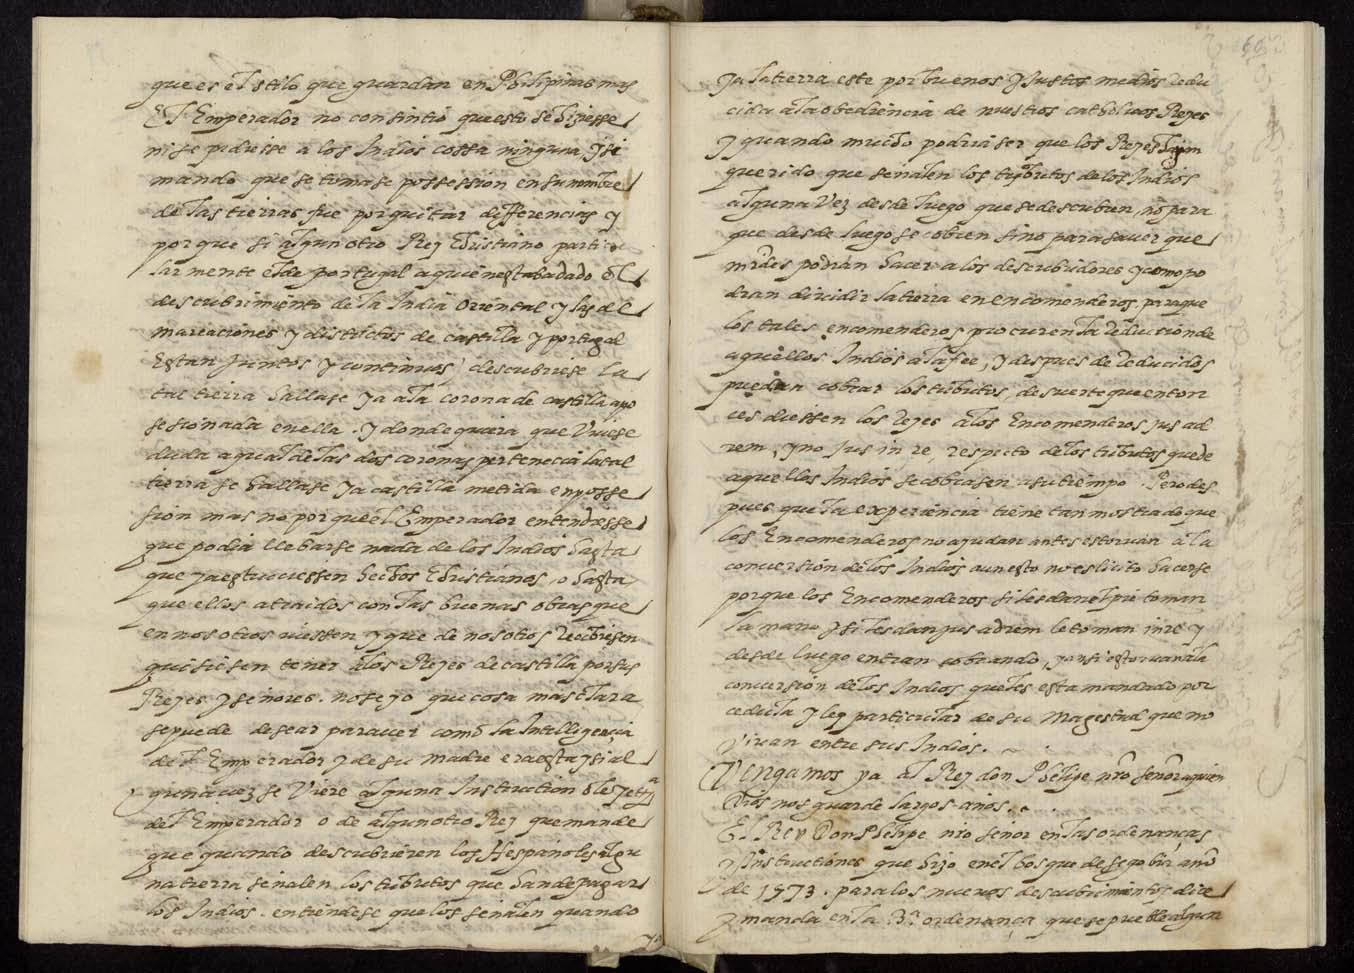 que es el stilo que guardan en Philipinas mas
El Emperador no consintio que esto se hiziesse
ni se pidiesse a los Indios cossa ninguna y si
mando que se tomase possession en su nombre
de las tierras fue por quitar differencias y
porque si algun otro Rey Christiano particu
larmente el de portugal a quien esta dado el
descubrimiento de la India Oriental y las de
marcaciones y districtos de castilla y portugal
Estan juntos y continuos, descubriese la
tal tierra hallase ya a la corona de castilla apo
sesionada en ella. y donde quiera que Vuiese
duda a qual de las dos coronas pertenecia la tal
tierra se hallase ya castilla metida en posse
sion mas no porque el Emperador entendiesse
que podia llebarse nada de los Indios hasta
que ya estuviessen hechos Christianos, o hasta
que ellos atraidos con las buenas obras que
en nosotros viessen y que de nosotros Recibiesen
quisiesen tener a los Reyes de castilla por sus
Reyes y señores. no se yo que cosa mas clara
se puede desear para ver como la Intelligençia
del Emperador y de su madre era esta y si al
guna vez se Viere alguna Instrucion o letra
del Emperador o de algun otro Rey que mande
que quando descubrieren los Hespañoles algu
na tierra señalen los tributos que han de pagar
los Indios. entiendese que los señalen quando
ya
ya la tierra este por buenos y Justos medios Redu
cida a la obediencia de nuestros catholicos Reyes
y quando mucho podria ser que los Reyes hayan
querido que señalen los tributos de los Indios
alguna Vez desde luego que se descubren, no para
que desde luego se cobren sino para saver que
mrds podran hacer a los descubridores y como po
dran dividir la tierra en encomenderos, para que
los tales encomenderos procuren la Reduccion de
aquellos Indios a la fee, y despues de Reducidos
puedan cobrar los tributos, de suerte que enton
ces diessen los Reyes a los Encomenderos jus ad
rem, y no jus in re, respecto de los tributos que de
aquellos Indios se cobrasen a su tiempo. Pero des
pues que la experiencia tiene tan mostrado que
los Encomenderos no ayudan antes estorvan a la
conversion de los Indios aun esto no es licito hacerse
porque los Encomenderos si les dan el pie toman
la mano y si les dan jus ad rem le toman in re y
desde luego entran cobrando, y ansi estorvan a la
conversion de los Indios que les esta mandado por
cedula y ley particular de su Magestad que no
vivan entre sus Indios.
Vengamos ya al Rey don Phelipe nro señor a quien
Dios nos guarde largos años.
El Rey Don Phelipe nro señor en las ordenanças
y Instructiones que hizo en el bosque de segobia año
de 1573. para los nuevos descubrimientos dice
y manda en la 3ª ordenança que se pueble algun